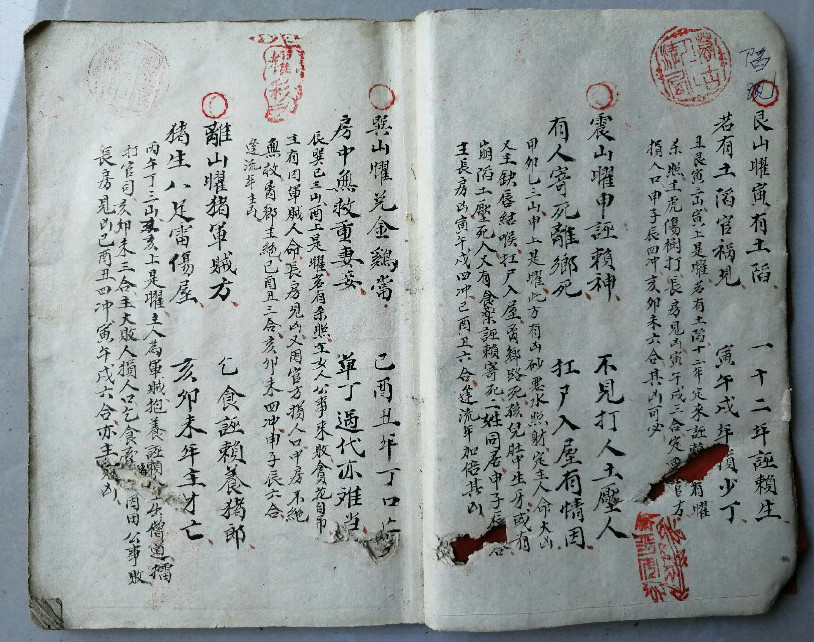 艮山曜寅有土滔 一十二年誣賴生
若有土滔官禍見 寅午戌年損少丁
丑艮寅三山寅上是曜若有土滔十二年定來誣賴有曜
杀照主虎傷樹打長房見凶寅午戌三合定官方
損人口申子辰四冲亥卯未六合其凶可必
震山曜申誣賴神 不見打人土壓人
有人寄死離鄉死 扛尸入屋有情因
甲卯乙三山申上是曜此方有山砂惡水照射定主人命大山
又主缺唇結喉扛尸入屋離鄉路死孩兒肚生牙或有
崩滔土壓死人又有食藥誣賴寄死二姓同居申子辰合
主長房凶寅午戌四冲巳酉丑六合逢流年加倍其凶
巽山曜兑金鷄當 巳酉丑年丁口亡
房中無救重妻妾 單丁過代亦难当
辰巽巳三山酉上是曜若有杀照主女人公事來敗貪花自吊
主有因軍賊人命長房見凶又因官方損人口中房不絶
無救离鄉主絶巳酉丑三合亥卯未四冲申子辰六合
逢流年主凶
離山曜猪軍賊方 乞食誣賴養猪郎
猪生八足雷傷屋 亥卯未年主才亡
丙午丁三山亥上是曜主人為軍賊抱養誣賴出僧道擂
打官司亥卯未三合主大敗人損人口乞食因田公事敗
長房見凶巳酉丑四冲寅午戌六合亦主凶